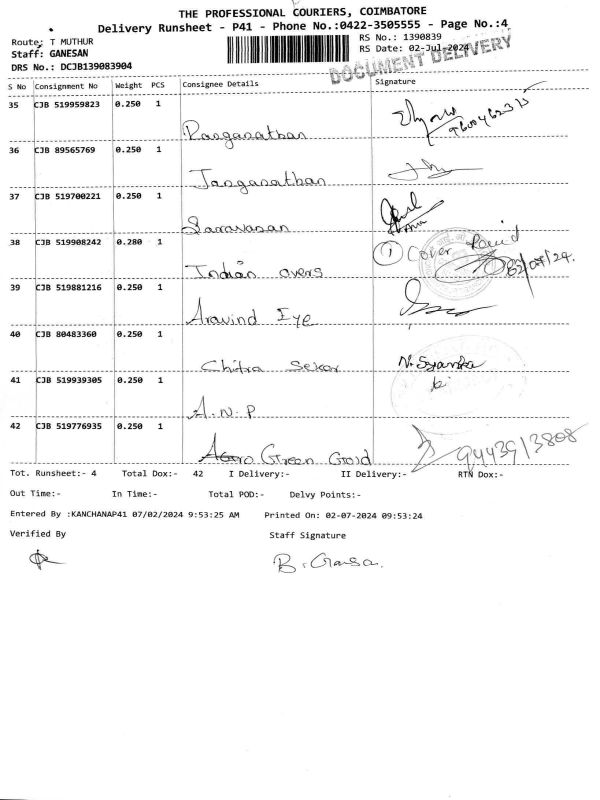 THE PROFESSIONAL COURIERS, COIMBATORE
Delivery Runsheet - P41 - Phone No.:0422-3505555 - Page No.:4
Route: T MUTHUR
RS No.: 1390839
Staff: GANESAN
RS Date: 02-Jul-2024
DRS No.: DCJB139083904
DOCUMENT DELIVERY
S No Consignment No Weight PCS Consignee Details Signature
35 CJB 519959823 0.250 1
Ranganathan
36 CJB 89565769 0.250 1
Janganathan
37 CJB 519700221 0.250 1
Saravanan
38 CJB 519908242 0.280 1 1 Cover
Indian overs 02/07/24.
39 CJB 519881216 0.250 1
Aravind Eye
40 CJB 80483360 0.250 1
Chitra Sekar
41 CJB 519939305 0.250 1
A.N.P
42 CJB 519776935 0.250 1
Green Gold 9443913808
Tot. Runsheet:- 4 Total Dox:- 42 I Delivery:- II Delivery:- RTN Dox:-
Out Time:- In Time:- Total POD:- Delvy Points:-
Entered By :KANCHANAP41 07/02/2024 9:53:25 AM Printed On: 02-07-2024 09:53:24
Verified By Staff Signature